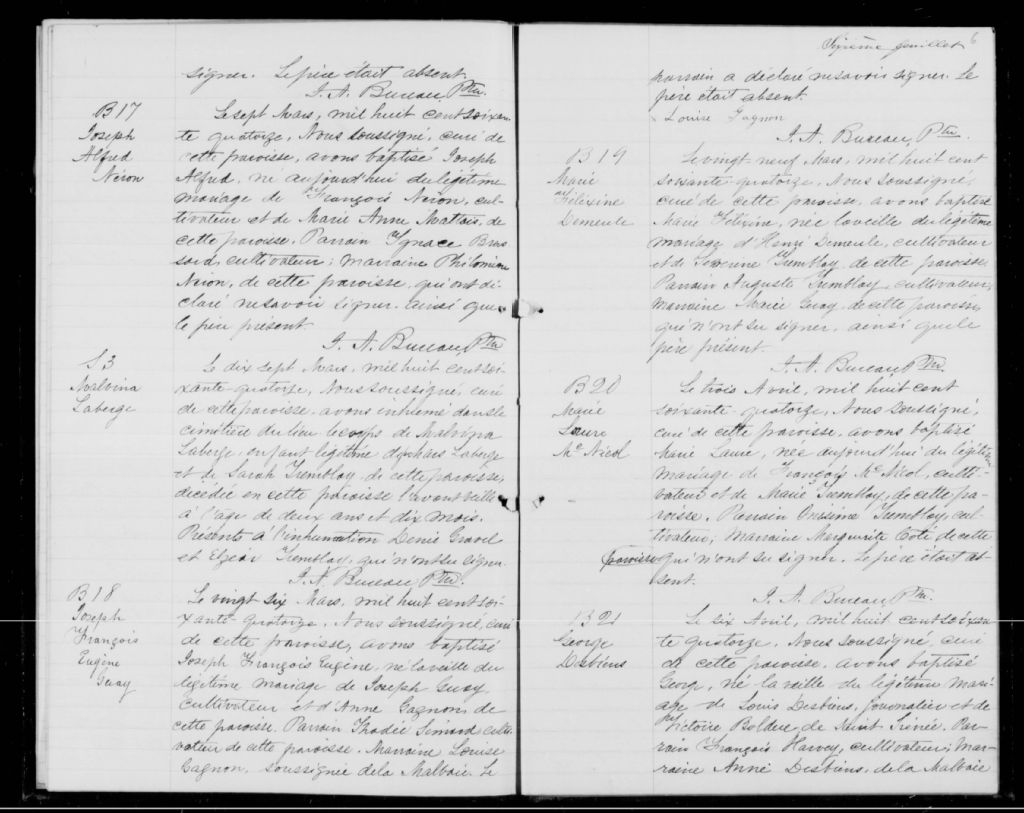 signer. Le père était absent.
J. A. Bureau, Ptre.
B17
Joseph
Alfred
Néron
Le sept Mars, mil huit cent soixan-
te quatorze, Nous soussigné, curé de
cette paroisse, avons baptisé Joseph
Alfred, né aujourd'hui du légitime
mariage de François Néron, cul-
tivateur et de Marie Anne Mattais, de
cette paroisse. Parrain Ignace Bras
sard, cultivateur; marraine Philomène
Néron, de cette paroisse, qui ont dé-
claré ne savoir signer ainsi que
le père présent.
J. A. Bureau, Ptre
S3
Malvina
Laberge
Le dix sept Mars, mil huit cent soi-
xante-quatorze, Nous soussigné, curé
de cette paroisse, avons inhumé dans le
cimetière du lieu le corps de Malvina
Laberge, enfant légitime de Laberge
et de Sarah Tremblay, de cette paroisse,
décédée en cette paroisse l'avant veille
à l'âge de deux ans et dix mois.
Présents à l'inhumation Denis Gravel
et Elzéar Tremblay, qui n'ont su signer.
J. A. Bureau Ptre.
B18
Joseph
François
Eugène
Guay
Le vingt-six Mars, mil huit cent soi-
xante-quatorze, Nous soussigné, curé
de cette paroisse, avons baptisé
Joseph François Eugène, né la veille du
légitime mariage de Joseph Guay,
cultivateur et d'Anne Gagnon, de
cette paroisse. Parrain Thadée Simard culti-
vateur de cette paroisse. Marraine Louise
Gagnon, soussignée de la Malbaie. Le
Sixième feuillet 6
parrain a déclaré ne savoir signer. Le
père était absent.
Louise Gagnon
J. A. Bureau, Ptre
B19
Marie
Félixine
Demeule
Le vingt-neuf Mars, mil huit cent
soixante quatorze, Nous soussigné,
curé de cette paroisse, avons baptisé
Marie Félixine, née la veille du légitime
mariage d'Henri Demeule, cultivateur
et de Tremblay, de cette paroisse.
Parrain Auguste Tremblay, cultivateur,
marraine Marie Guay, de cette paroisse,
qui n'ont su signer, ainsi que le
père présent.
J. A. Bureau Ptre.
B20
Marie
Laure
Mc Nicol
Le trois Avril, mil huit cent
soixante-quatorze, Nous soussigné,
curé de cette paroisse, avons baptisé
Marie Laure, née aujourd'hui du légitime
mariage de François Mc Nicol, culti-
vateur et de Marie Tremblay, de cette pa-
roisse. Parrain Onésime Tremblay, cul-
tivateur; Marraine Marguerite Coté de cette
paroisse qui n'ont su signer. Le père était ab
sent.
J. A. Bureau Ptre.
B21
George
Desbiens
Le six Avril, mil huit cent soixan-
te quatorze, Nous soussigné, curé
de cette paroisse, avons baptisé
George, né la veille du légitime mari-
age de Louis Desbiens, journalier et de
Victoire Bolduc, de Saint Irénée. Par-
rain François Harvey, cultivateur; Mar-
raine Anné Desbiens, de la Malbaie